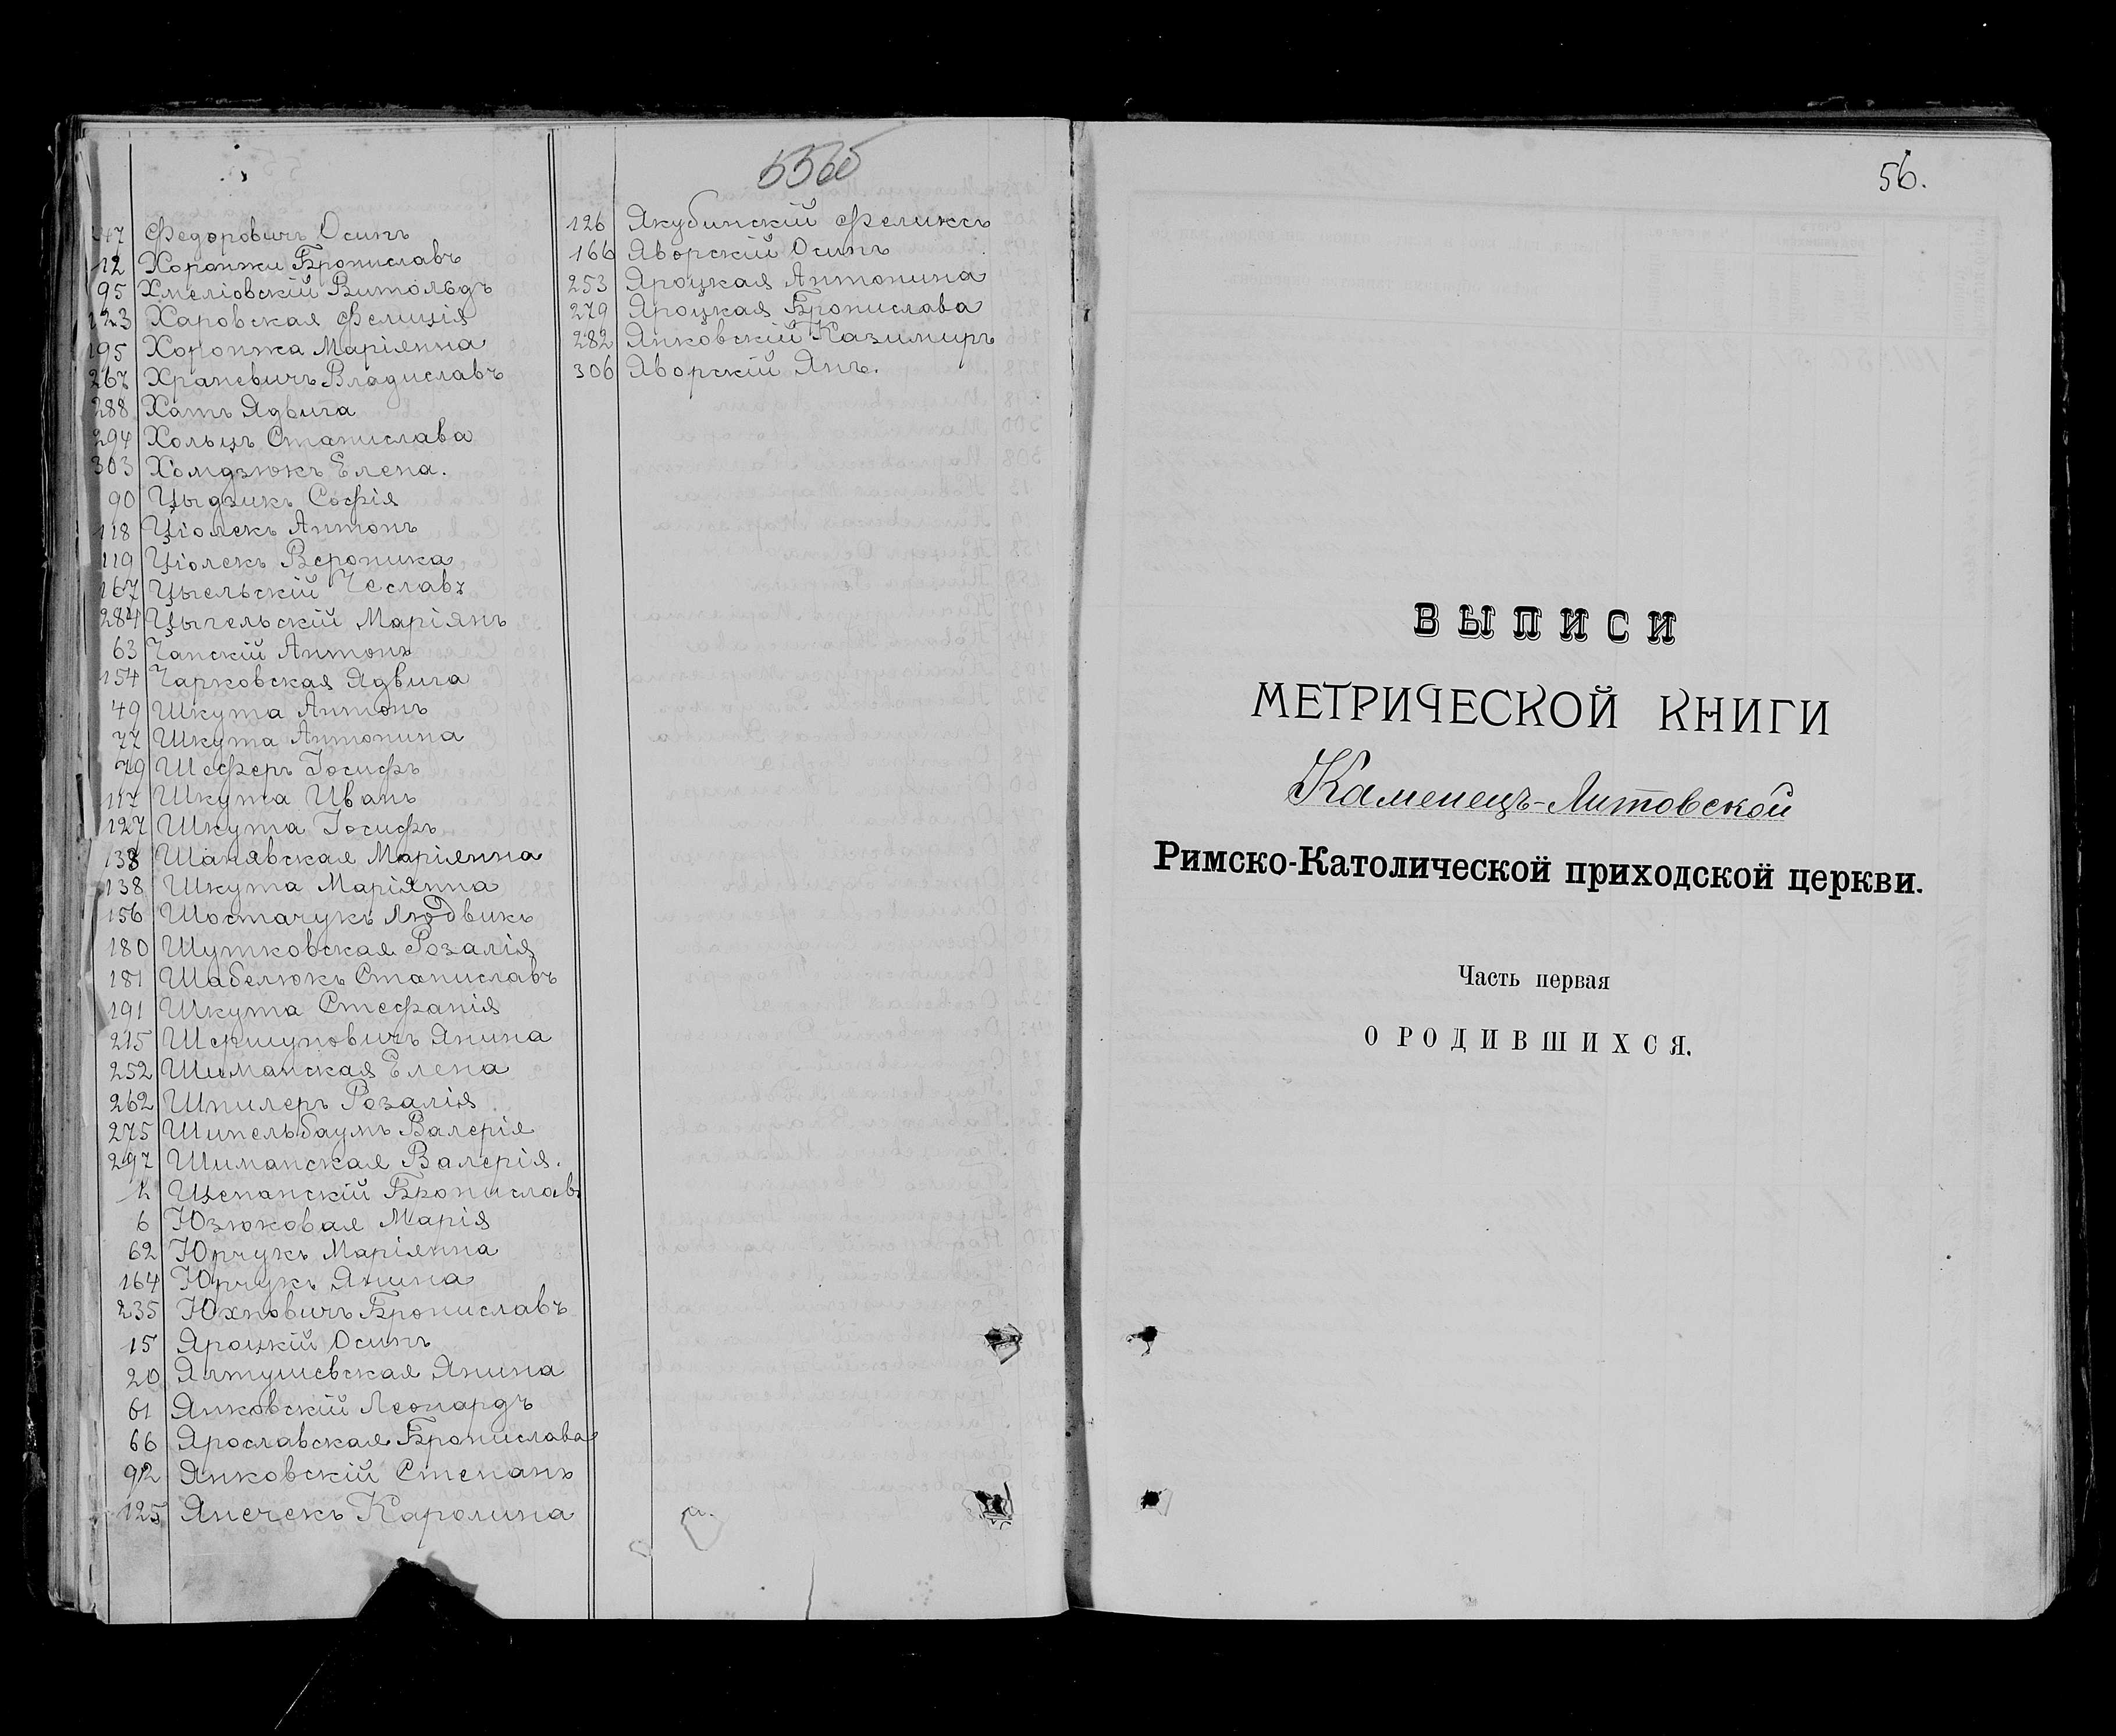 55об
47 Федоровичъ Осипъ
12 Хоронжи Брониславъ
95 Хмеліовскій Витольдъ
123 Харовская Фелиція
195 Хоронжа Маріянна
267 Храневичъ Владиславъ
288 Хать Ядвига
294 Хольцъ Станислава
303 Хомдзюкъ Елена.
90 Цыдзикъ Софія
118 Ціолекъ Антонъ
119 Ціолекъ Вероника
167 Цыельскій Чеславъ
284 Цыгельскій Маріянъ
63 Чапскій Антонъ
154 Чарковская Ядвига
49 Шкута Антонъ
77 Шкута Антонина
79 Шеферъ Іосифъ
117 Шкута Иванъ
127 Шкута Іосифъ
133 Шанявская Маріянна
138 Шкута Маріянна
156 Шостачукъ Людвикъ
180 Шутковская Розалія
181 Шабелюкъ Станиславъ
191 Шкута Стефанія
215 Шершуновичъ Янина
252 Шиманская Елена
262 Шпилеръ Розалія
275 Шипельбаумъ Валерія
297 Шиманская Валерія.
Щепанскій Брониславъ
6 Юзюковая Марія
62 Юрчукъ Маріянна
164 Юрчукъ Янина
235 Юхновичъ Брониславъ
15 Яроцкій Осипъ
20 Ялтушевская Янина
61 Янковскій Леонардъ
66 Ярославская Бронислава
92 Янковскій Степанъ
125 Янечекъ Каролина
126 Якубинскій Феликсъ
166 Яворскій Осипъ
253 Яроцкая Антонина
279 Яроцкая Бронислава
282 Янковскій Казимиръ
306 Яворскій Янъ.
56.
ВЫПИСИ
МЕТРИЧЕСКОЙ КНИГИ
Каменецъ-Литовской
Римско-Католической приходской церкви.
Часть первая
О РОДИВШИХСЯ.